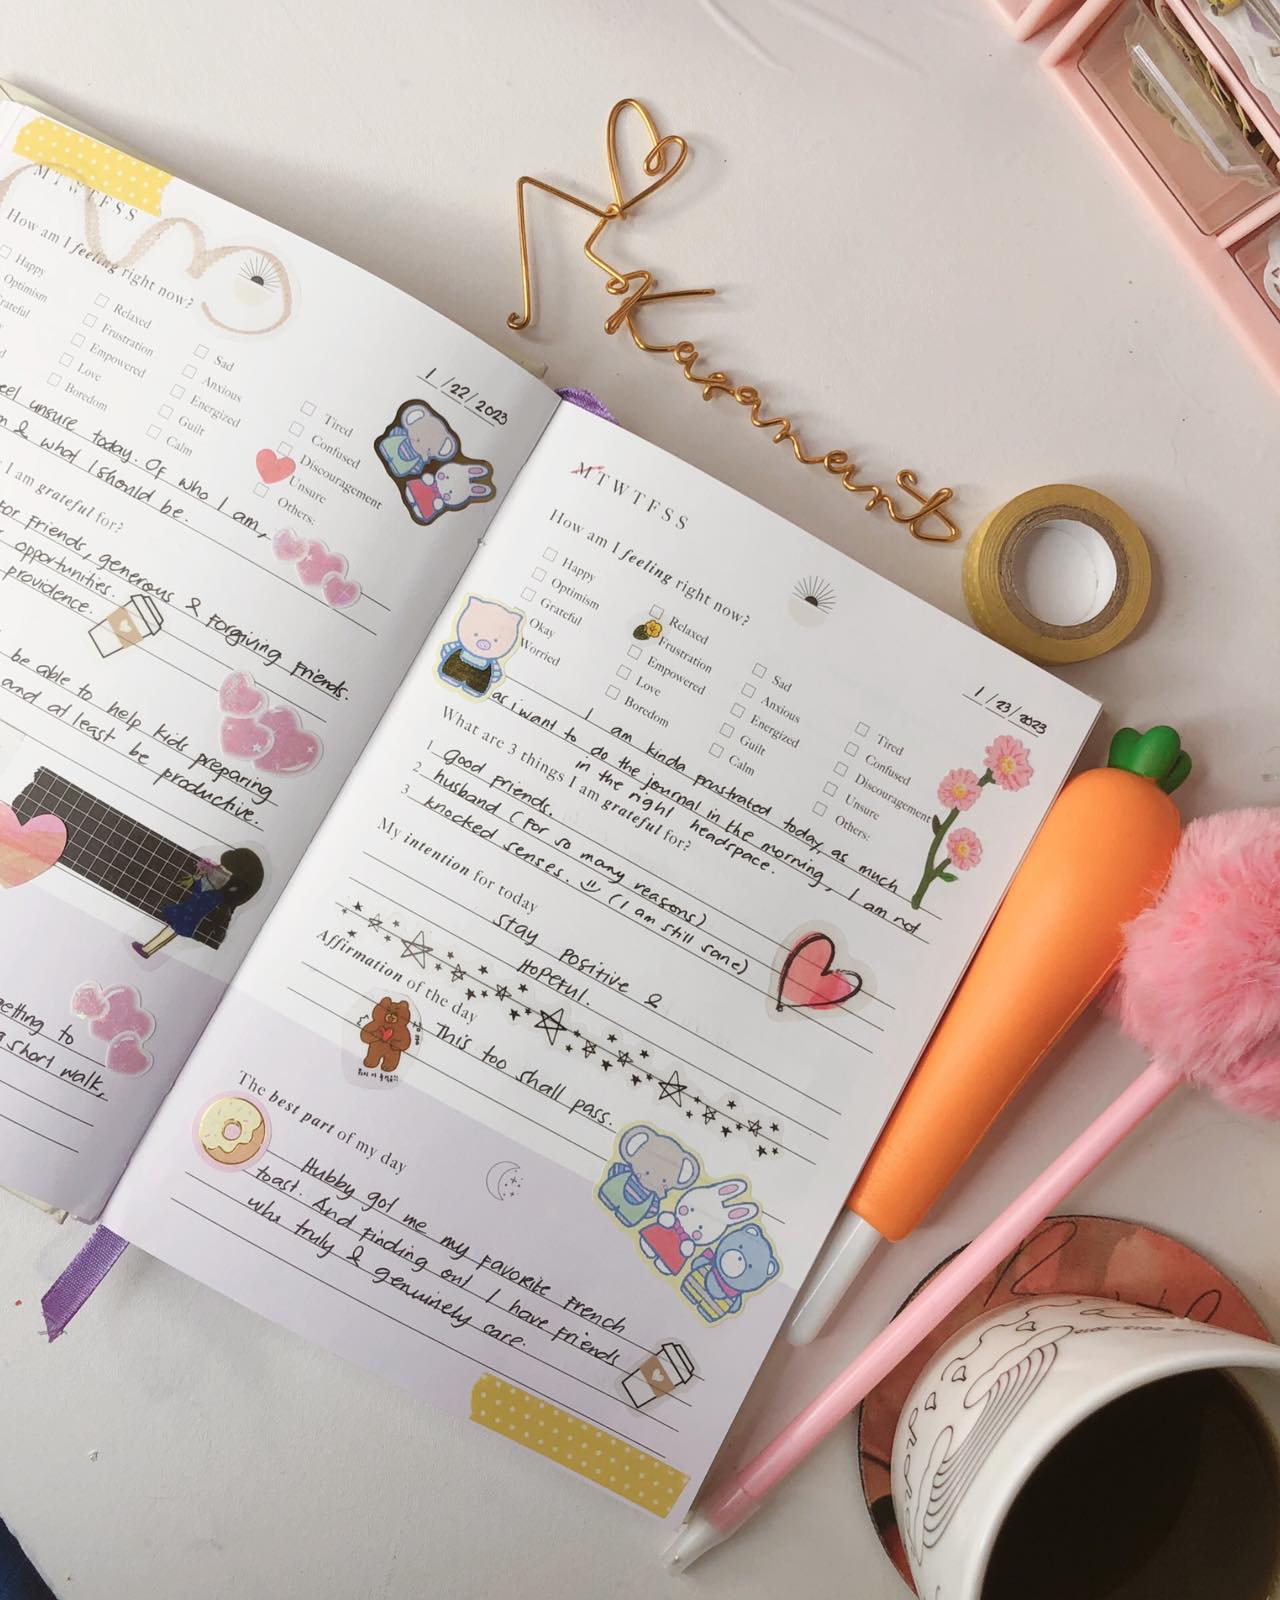 MTWTFSS
How am I feeling right now?
Happy
Optimism
Relaxed
Frustration
Empowered
Love
Boredom
Sad
Anxious
Energized
Guilt
Calm
Tired
Confused
Discouragement
Unsure
Others:
1/22/2023
unsure today. Of who I am,
& what I should be.
I am grateful for?
Friends, generous & Forgiving Friends.
opportunities.
providence.
be able to help kids preparing
and at least be productive.
getting to
short walk,
MTWTFSS
1/23/2023
How am I feeling right now?
Happy
Optimism
Grateful
Okay
Worried
Relaxed
Frustration
Empowered
Love
Boredom
Sad
Anxious
Energized
Guilt
Calm
Tired
Confused
Discouragement
Unsure
Others:
I am kinda frustrated today, as much
as i want to do the journal in the morning, I am not
in the right headspace.
What are 3 things I am grateful for?
1 Good Friends.
2 husband (For so many reasons)
3 knocked senses. (I am still sane)
My intention for today
Stay Positive &
Hopeful.
Affirmation of the day
This too shall pass.
The best part of my day
Hubby got me my Favorite French
toast. And Finding out I have Friends
who truly & genuinely care.